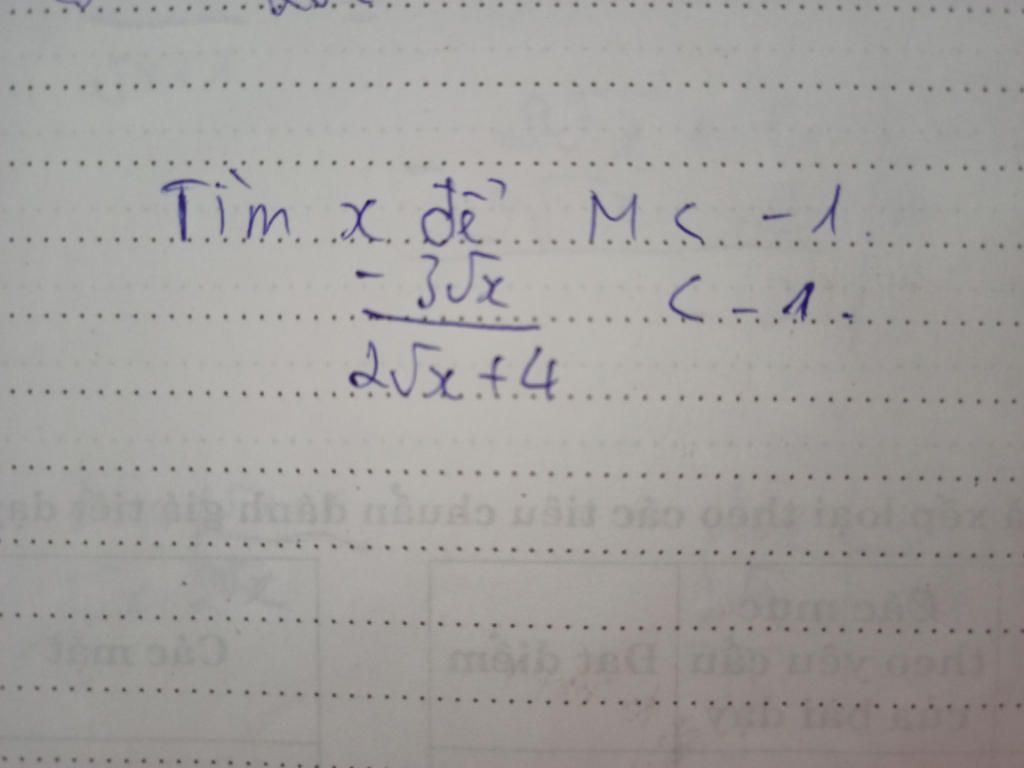 Tìm x để M < -1.
-3√x
2√x + 4
< -1.